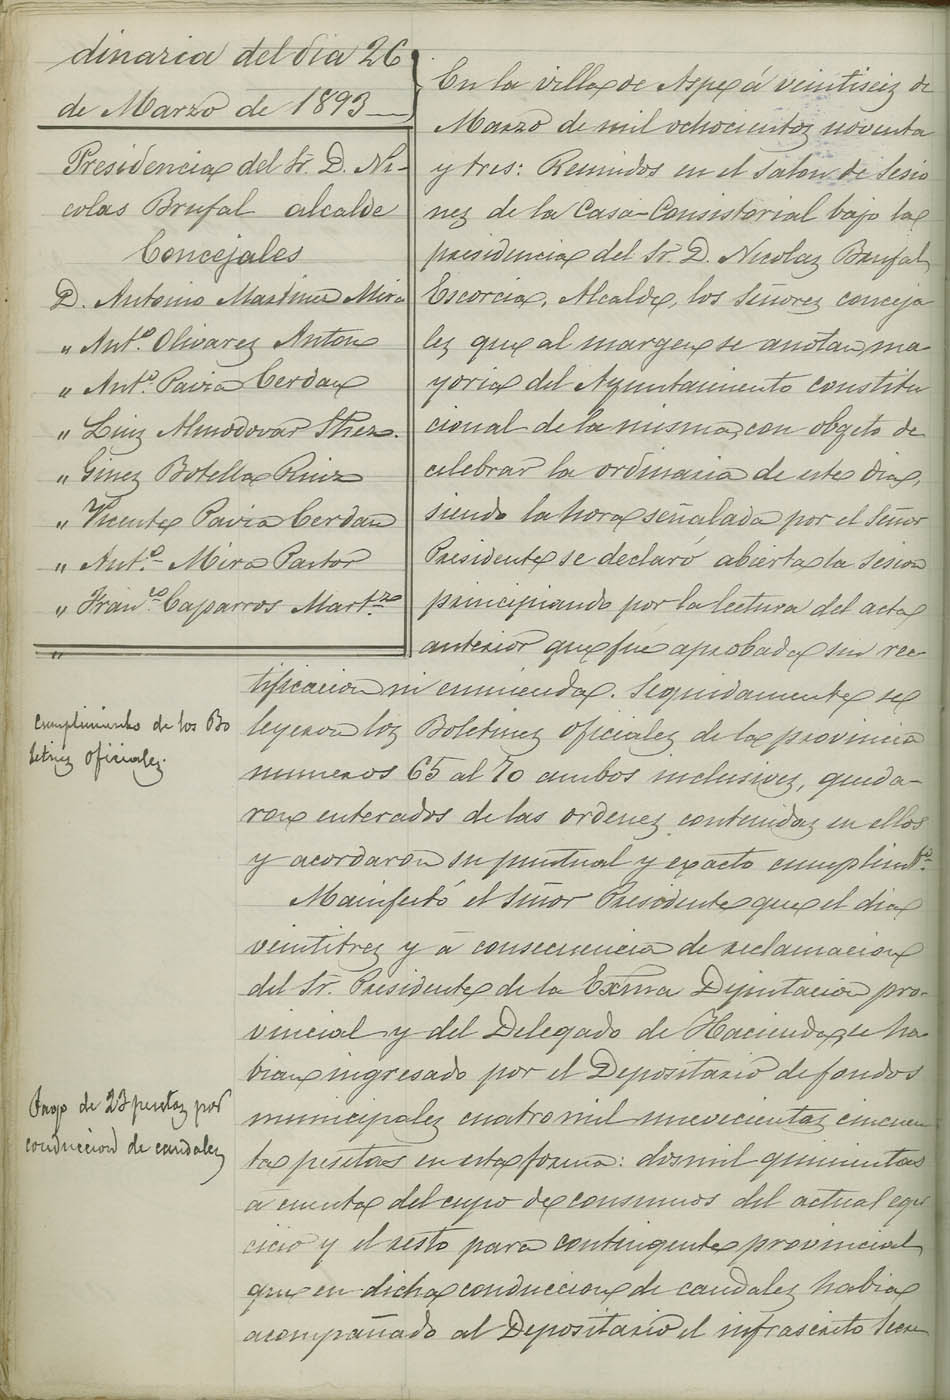 dinaria del dia 26
de Marzo de 1893
Presidencia del Sr. D. Ni-
colas Brufal alcalde
Concejales
D. Antonio Martinez Mira
" Ant.º Olivarez Anton
" Ant.º Pavia Cerdan
" Luiz Almodovar Shez.
" Ginez Botella Ruiz
" Vicente Pavia Cerdan
" Ant.º Mira Pastor
" Fran.co Caparros Mart.nez
"
En la villa de Aspe á veintiseiz de
Marzo de mil ochocientoz noventa
y tres: Reunidos en el salon de Sesio
nez de la Casa-Consistorial bajo la
presidencia del Sr. D. Nicolaz Brufal
Escorcia, Alcalde, los Señorez conceja
lez que al margen se anotan, ma
yoria del Ayuntamiento constitu
cional de la misma, con obgeto de
celebrar la ordinaria de este dia,
siendo la hora señalada por el Señor
Presidente se declaró abierta la Sesion
principiando por la lectura del acta
anterior que fué aprobada sin rec-
tificacion ni enmienda. Seguidamente se
leyeron loz Boletinez oficialez de la provincia
numeros 65 al 70 ambos inclusivez, queda-
ron enterados de las ordenez contenidaz en ellos
y acordaron su puntual y exacto cumplimto.
Manifestó el Señor Presidente que el dia
veintitrez y á consecuencia de reclamacion
del Sr. Presidente de la Exma Diputacion pro-
vincial y del Delegado de Hacienda, se ha-
bian ingresado por el Depositario de fondos
municipalez cuatro mil nuevecientaz cincuen
ta pesetas en esta forma: dos mil quinientas
á cuenta del cupo de consumos del actual eger
cicio y el resto para contingente provincial
que en dicha conduccion de caudalez habia
acompañado al Depositario el infrascrito Secre
Cumplimiento de los Bo
letinez oficialez.
Pago de 23 pesetaz por
conduccion de caudalez